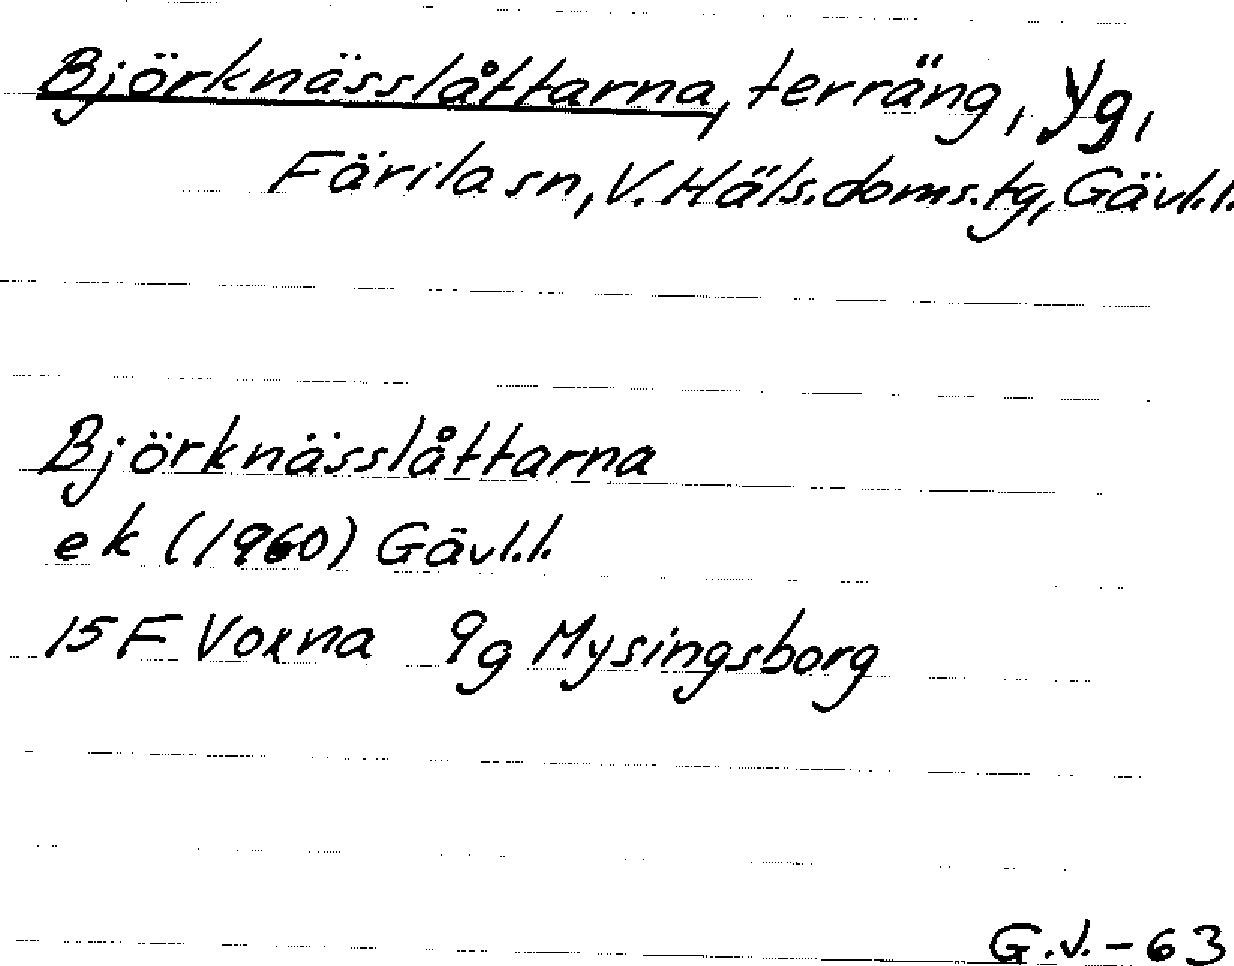 Björknässlåttarna, terräng, yg,
Färila sn, V. Häls. doms. tg, Gävl.l.
Björknässlåttarna
ek (1960) Gävl.l.
15F Voxna 9g Mysingsborg
G.J.-63